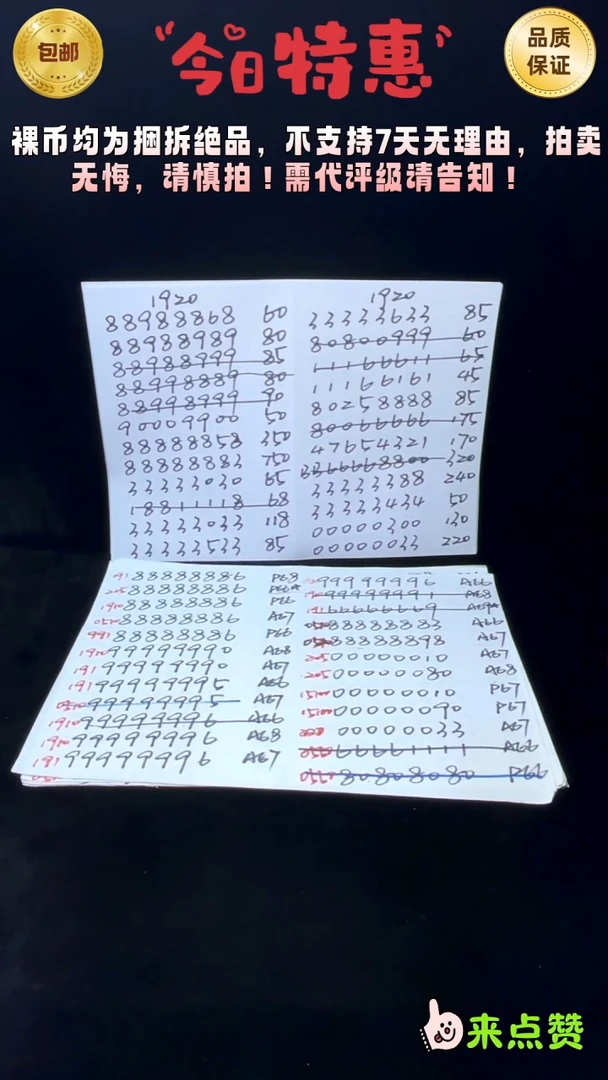 包邮
今日特惠
品质
保证
裸币均为捆拆绝品，不支持7天无理由，拍卖
无悔，请慎拍！需代评级请告知！
1920
88988868 60
88988989 80
88988999 85
88998889 80
88998999 90
90009900 50
88888858 350
88888883 750
33333030 65
18811118 68
33333033 118
33333533 85
1920
33333633 85
80800999 60
11166611 65
11166161 45
80258888 85
80066666 175
47654321 170
3366668800 320
33333388 240
33333434 50
00000300 130
00000033 220
191 88888886 P68
205 88888886
1910 88888886 P66
0510 88888886 A67
991 88888886 P66
1910 99999990 A68
191 99999990 A67
191 99999995 A66
0510 99999995 A67
1910 99999996 A66
1910 99999996 A68
191 99999996 A67
99999996 A66
190 99999991 A68
191 66666669
88888883 A66
88888898 A67
205 00000010 A67
205 00000080 A68
1510 00000010 P67
1510 00000090 P67
00000033 A67
0510 66661111 A66
0510 80808080 P66
来点赞